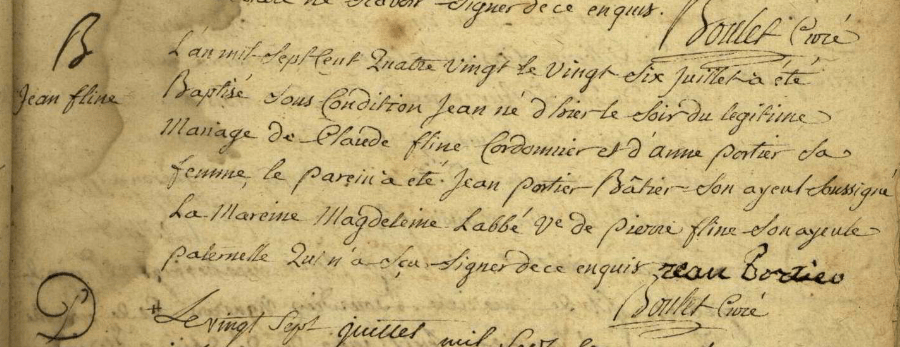 ne scavoir signer de ce enquis.
Boulet Curé
B
Jean fline
L'an mil sept cent Quatre vingt le vingt six juillet a été
Baptisé sous Condition Jean né d'hier le soir du legitime
Mariage de Claude fline Cordonnier et d'anne portier sa
femme, le parein a été Jean portier Bâtier son ayeul soussigné
La Mareine Magdeleine Labbé Ve de pierre fline son ayeule
paternelle Qui n'a sçu signer de ce enquis Jean Portier
Boulet Curé
Le vingt Sept juillet mil Sept